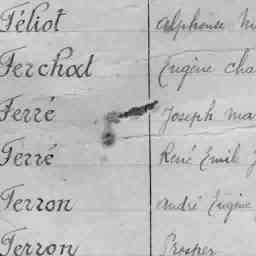 Féliot Alphonse
Ferchat Eugène
Ferré Joseph
Ferré René Emil
Ferron André Eugène
Ferron Prosper